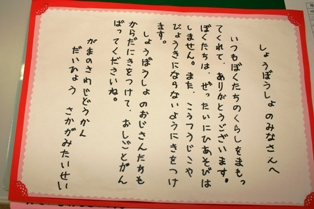 しょうぼうしょのみなさんへ
いつもぼくたちのくらしをまもっ
てくれて、ありがとうございます。
ぼくたちは、ぜったいにひあそびは
しません。また、こうつうじこや
びょうきにならないようにきをつけ
ます。
しょうぼうしょのおじさんたちも
からだにきをつけて、おしごとがん
ばってくださいね。
がまのさわじどうかん
だいひょう さかがみたいせい